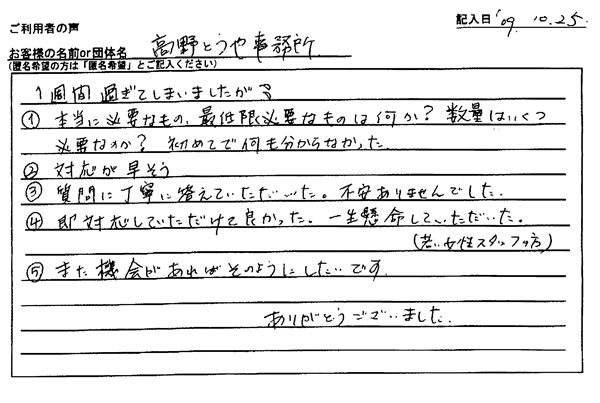 ご利用者の声
記入日 '09. 10. 25.
お客様の名前or団体名 高野とうや事務所
(匿名希望の方は「匿名希望」とご記入ください)
1週間過ぎてしまいましたが
① 本当に必要なもの、最低限必要なものは何か? 数量はいくつ
必要なのか? 初めてで何も分からなかった.
② 対応が早そう
③ 質問に丁寧に答えていただいた。不安ありませんでした.
④ 即対応していただけて良かった. 一生懸命していただいた。
(若い女性スタッフの方)
⑤ また機会があればそのようにしたいです.
ありがとうございました.